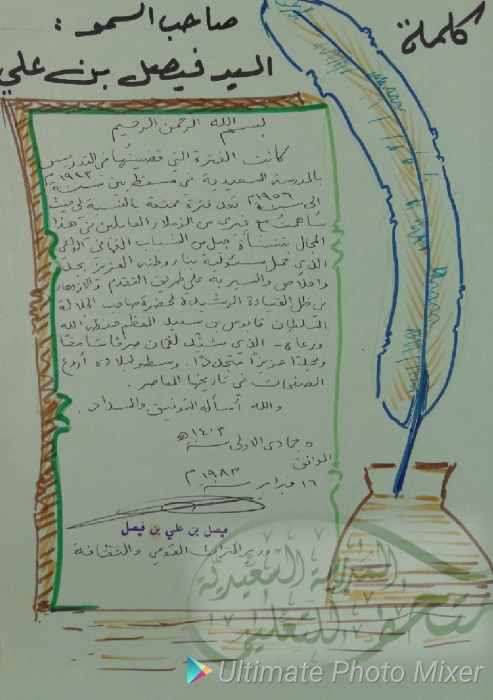 كلمة
صاحب السمو :
السيد فيصل بن علي
بسم الله الرحمن الرحيم
كانت الفترة التي قضيتها في التدريس
بالمدرسة السعيدية في مسقط بين سنة ١٩٤٣م
الى سنة ١٩٥٦م تعد فترة ممتعة بالنسبة لي حيث
ساهمت مع غيري من الزملاء العاملين في هذا
المجال بتنشأة جيل من الشباب العماني الواعي
الذي تحمل مسئولية بناء وطنه العزيز بجد
واخلاص والسير به على طريق التقدم والازدهار
في ظل القيادة الرشيدة لحضرة صاحب الجلالة
السلطان قابوس بن سعيد المعظم حفظه الله
ورعاه - الذي شيّد لعُمان صرحًا شامخًا
ومجدًا عزيزًا متجددًا. وسطر لبلاده أروع
الصفحات في تاريخها المعاصر.
والله أسأله التوفيق والسداد.
٥ جمادى الاولى سنة ١٤٠٣ه
الموافق
١٦ فبراير سنة ١٩٨٣م
فيصل بن علي بن فيصل
وزير التراث القومي والثقافة
المدرسة السعيدية
متحف للتعليم
Ultimate Photo Mixer